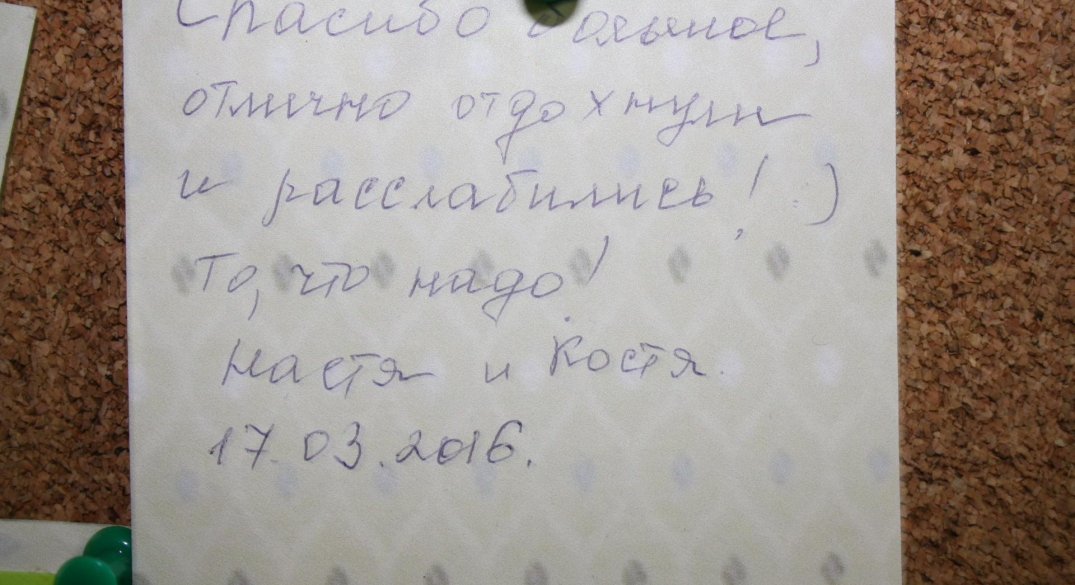 Спасибо большое,
отлично отдохнули
и расслабились! :)
То, что надо!
Настя и Костя.
17.03.2016.